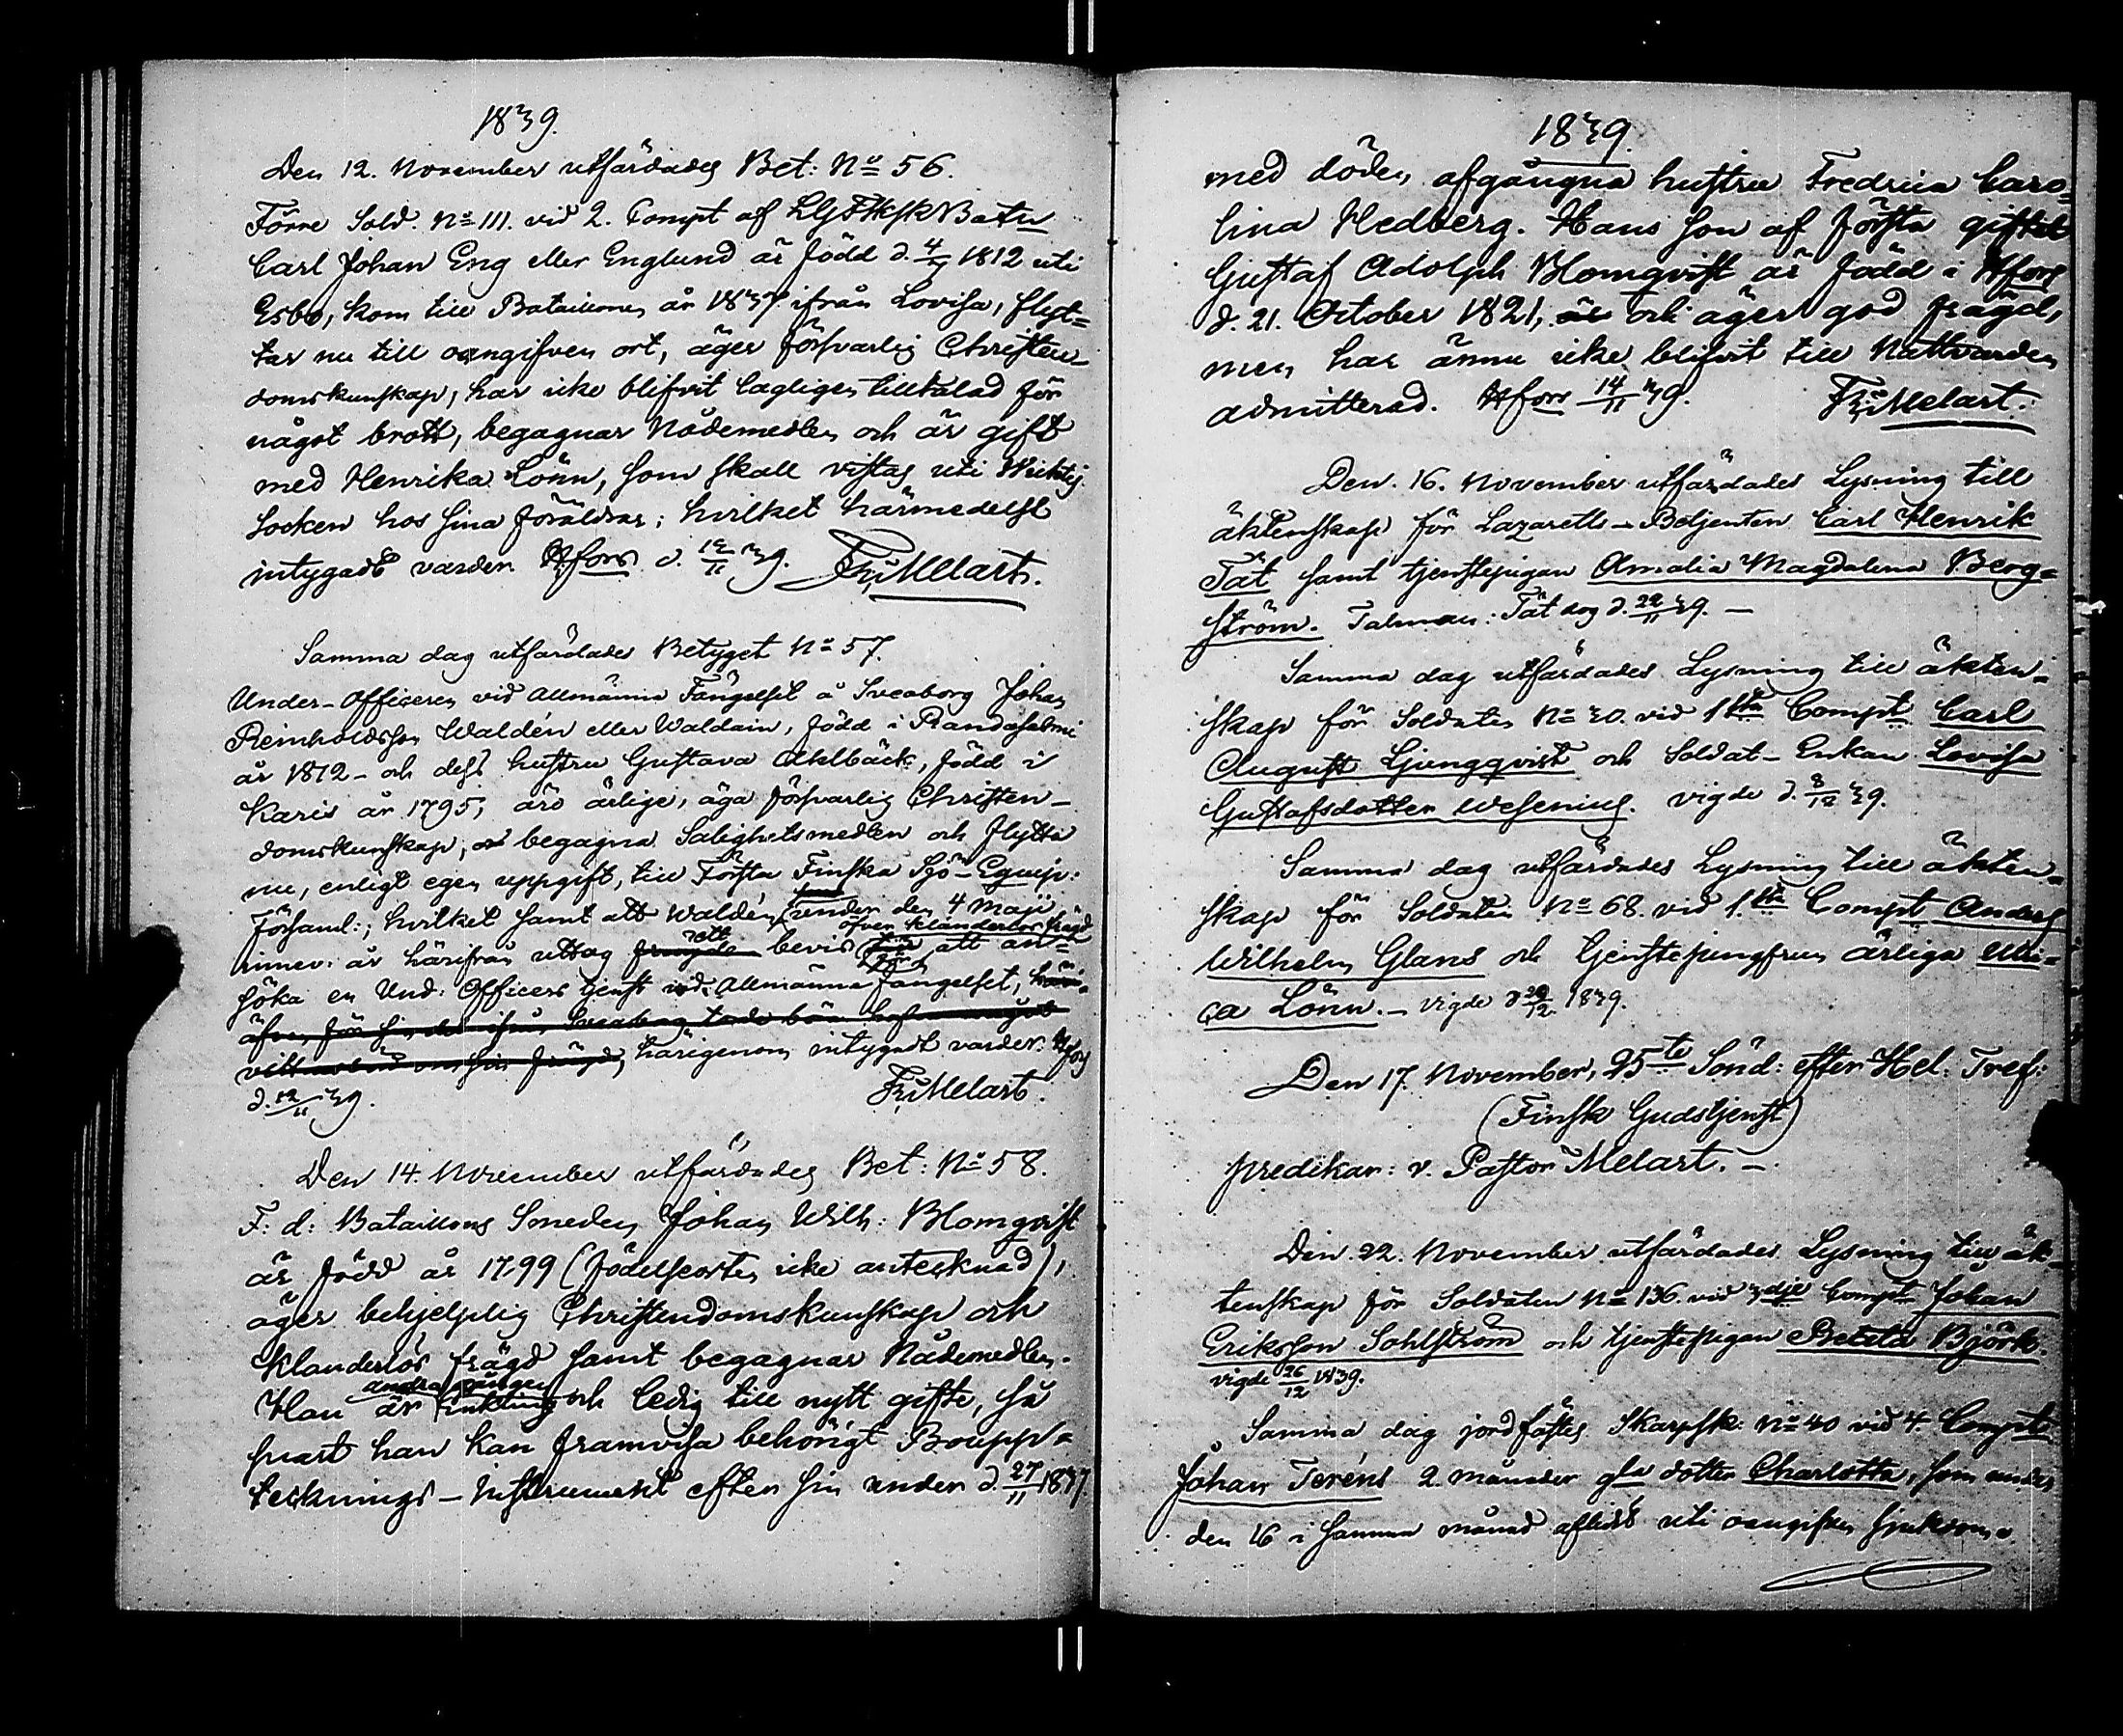 1839.
Den 12. November utfärdades Bet: No 56.
Förre Sold. No 111. vid 2. Compt af LGFSkSk Batn
Carl Johan Eng eller Englund är född d. 4/7 1812 uti
Esbo, kom till Bataillonen år 1837 ifrån Lovisa, flyt=
tar nu till oangifven ort, äger försvarlig Christen-
domskunskap, har icke blifvit lagligen tilltalad för
något brott, begagnar Nådemedlen och är gift
med Henrika Lönn, som skall vistas uti Wichtis
Socken hos sina föräldrar; hvilket härmedelst
intygadt varder. Hfors d. 12/11 39. Fr: Melart.
Samma dag utfärdades Betyget No 57.
Under-Officeren vid Allmänna Fängelset å Sveaborg Johan
Reinholdsson Waldén eller Waldain, född i Randasalmi
år 1812 - och dess hustru Gustava Ahlbäck, född i
Karis år 1795, äro ärlige, äga försvarlig Christen-
domskunskap, begagna Salighetsmedlen och flytta
nu, enligt egen uppgift, till Första Finska Sjö-Equip:
Församl:; hvilket samt att Waldén under den 4 Maji
öfver klanderlös frägd
innev: år härifrån uttog ett bevis för att an=
söka en Und: Officers tjenst vid Allmänna Fängelset,
härigenom intygadt varder. Hfors
d. 12/11 39. Fr: Melart.
Den 14. November utfärdades Bet: No 58.
F: d: Bataillons Smeden Johan Wilh: Blomqvist
är född år 1799 (födelseorten icke antecknad),
äger behjelplig Christendomskunskap och
klanderlös frägd samt begagnar Nådemedlen.
andra gången
Han är Enkling och ledig till nytt gifte, så
snart han kan framvisa behörigt Boupp=
tecknings-Instrument efter sin under d. 27/11 1837
1839.
med döden afgångna hustru Fredrica Caro=
lina Hedberg. Hans son af första giftet
Gustaf Adolph Blomqvist är född i Hfors
d. 21. October 1821, är och äger god frägd,
men har ännu icke blifvit till Nattvarden
admitterad. Hfors 14/11 39. Fr: Melart.
Den 16. November utfärdades Lysning till
äktenskap för Lazaretts-Betjenten Carl Henrik
Tät samt tjenstepigan Amalia Magdalena Berg=
ström. Talman: Tät dog d. 22/11 39. -
Samma dag utfärdades Lysning till äkten=
skap för Soldaten No 30. vid 1sta Compt Carl
August Ljungqvist och Soldat-Enkan Lovisa
Gustafsdotter Wesenius. Vigde d. 8/12 39.
Samma dag utfärdades Lysning till äkten=
skap för Soldaten No 68. vid 1.sta Compt Anders
Wilhelm Glans och tjenstejungfrun ärliga Ulri=
ca Lönn. - Vigde d. 29/12 1839.
Den 17. November, 25te Sönd: efter Hel. Tref:
(Finsk Gudstjenst)
predikar: v. Pastor Melart. -
Den 22. November utfärdades Lysning till äk=
tenskap för Soldaten No 136. vid 3dje Compt Johan
Eriksson Sohlström och tjenstepigan Beata Björk.
vigde 26/12 1839.
Samma dag jordfästes Skarpsk: No 40 vid 4. Compt
Johan Teréns 2. månader gla dotter Charlotta, som under
den 16 i samma månad aflidit uti oangifven sjukdom.